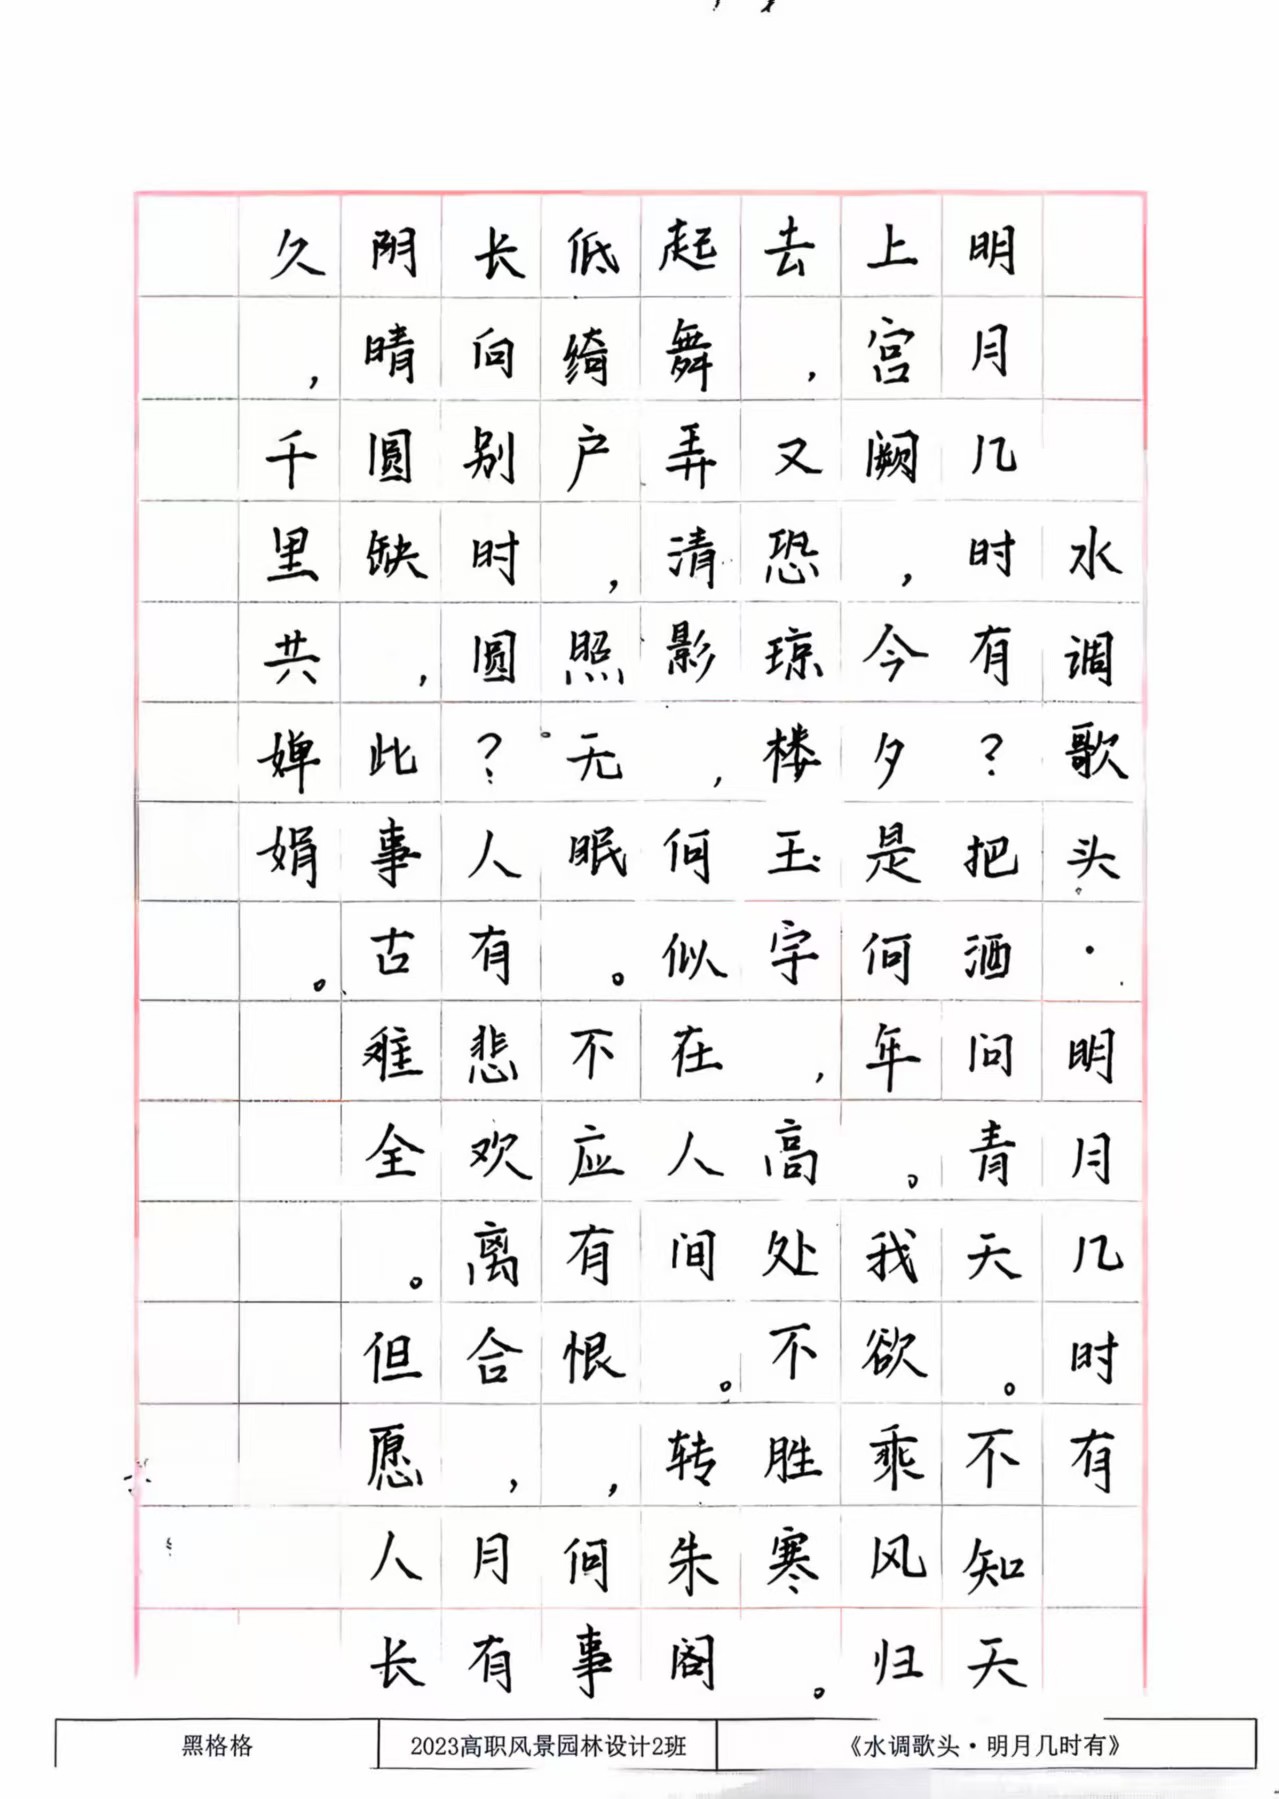 水调歌头·明月几时有
明月几时有？把酒问青天。不知天
上宫阙，今夕是何年。我欲乘风归
去，又恐琼楼玉宇，高处不胜寒。
起舞弄清影，何似在人间。转朱阁
低绮户，照无眠。不应有恨，何事
长向别时圆？人有悲欢离合，月有
阴晴圆缺，此事古难全。但愿人长
久，千里共婵娟。
黑格格
2023高职风景园林设计2班
《水调歌头·明月几时有》